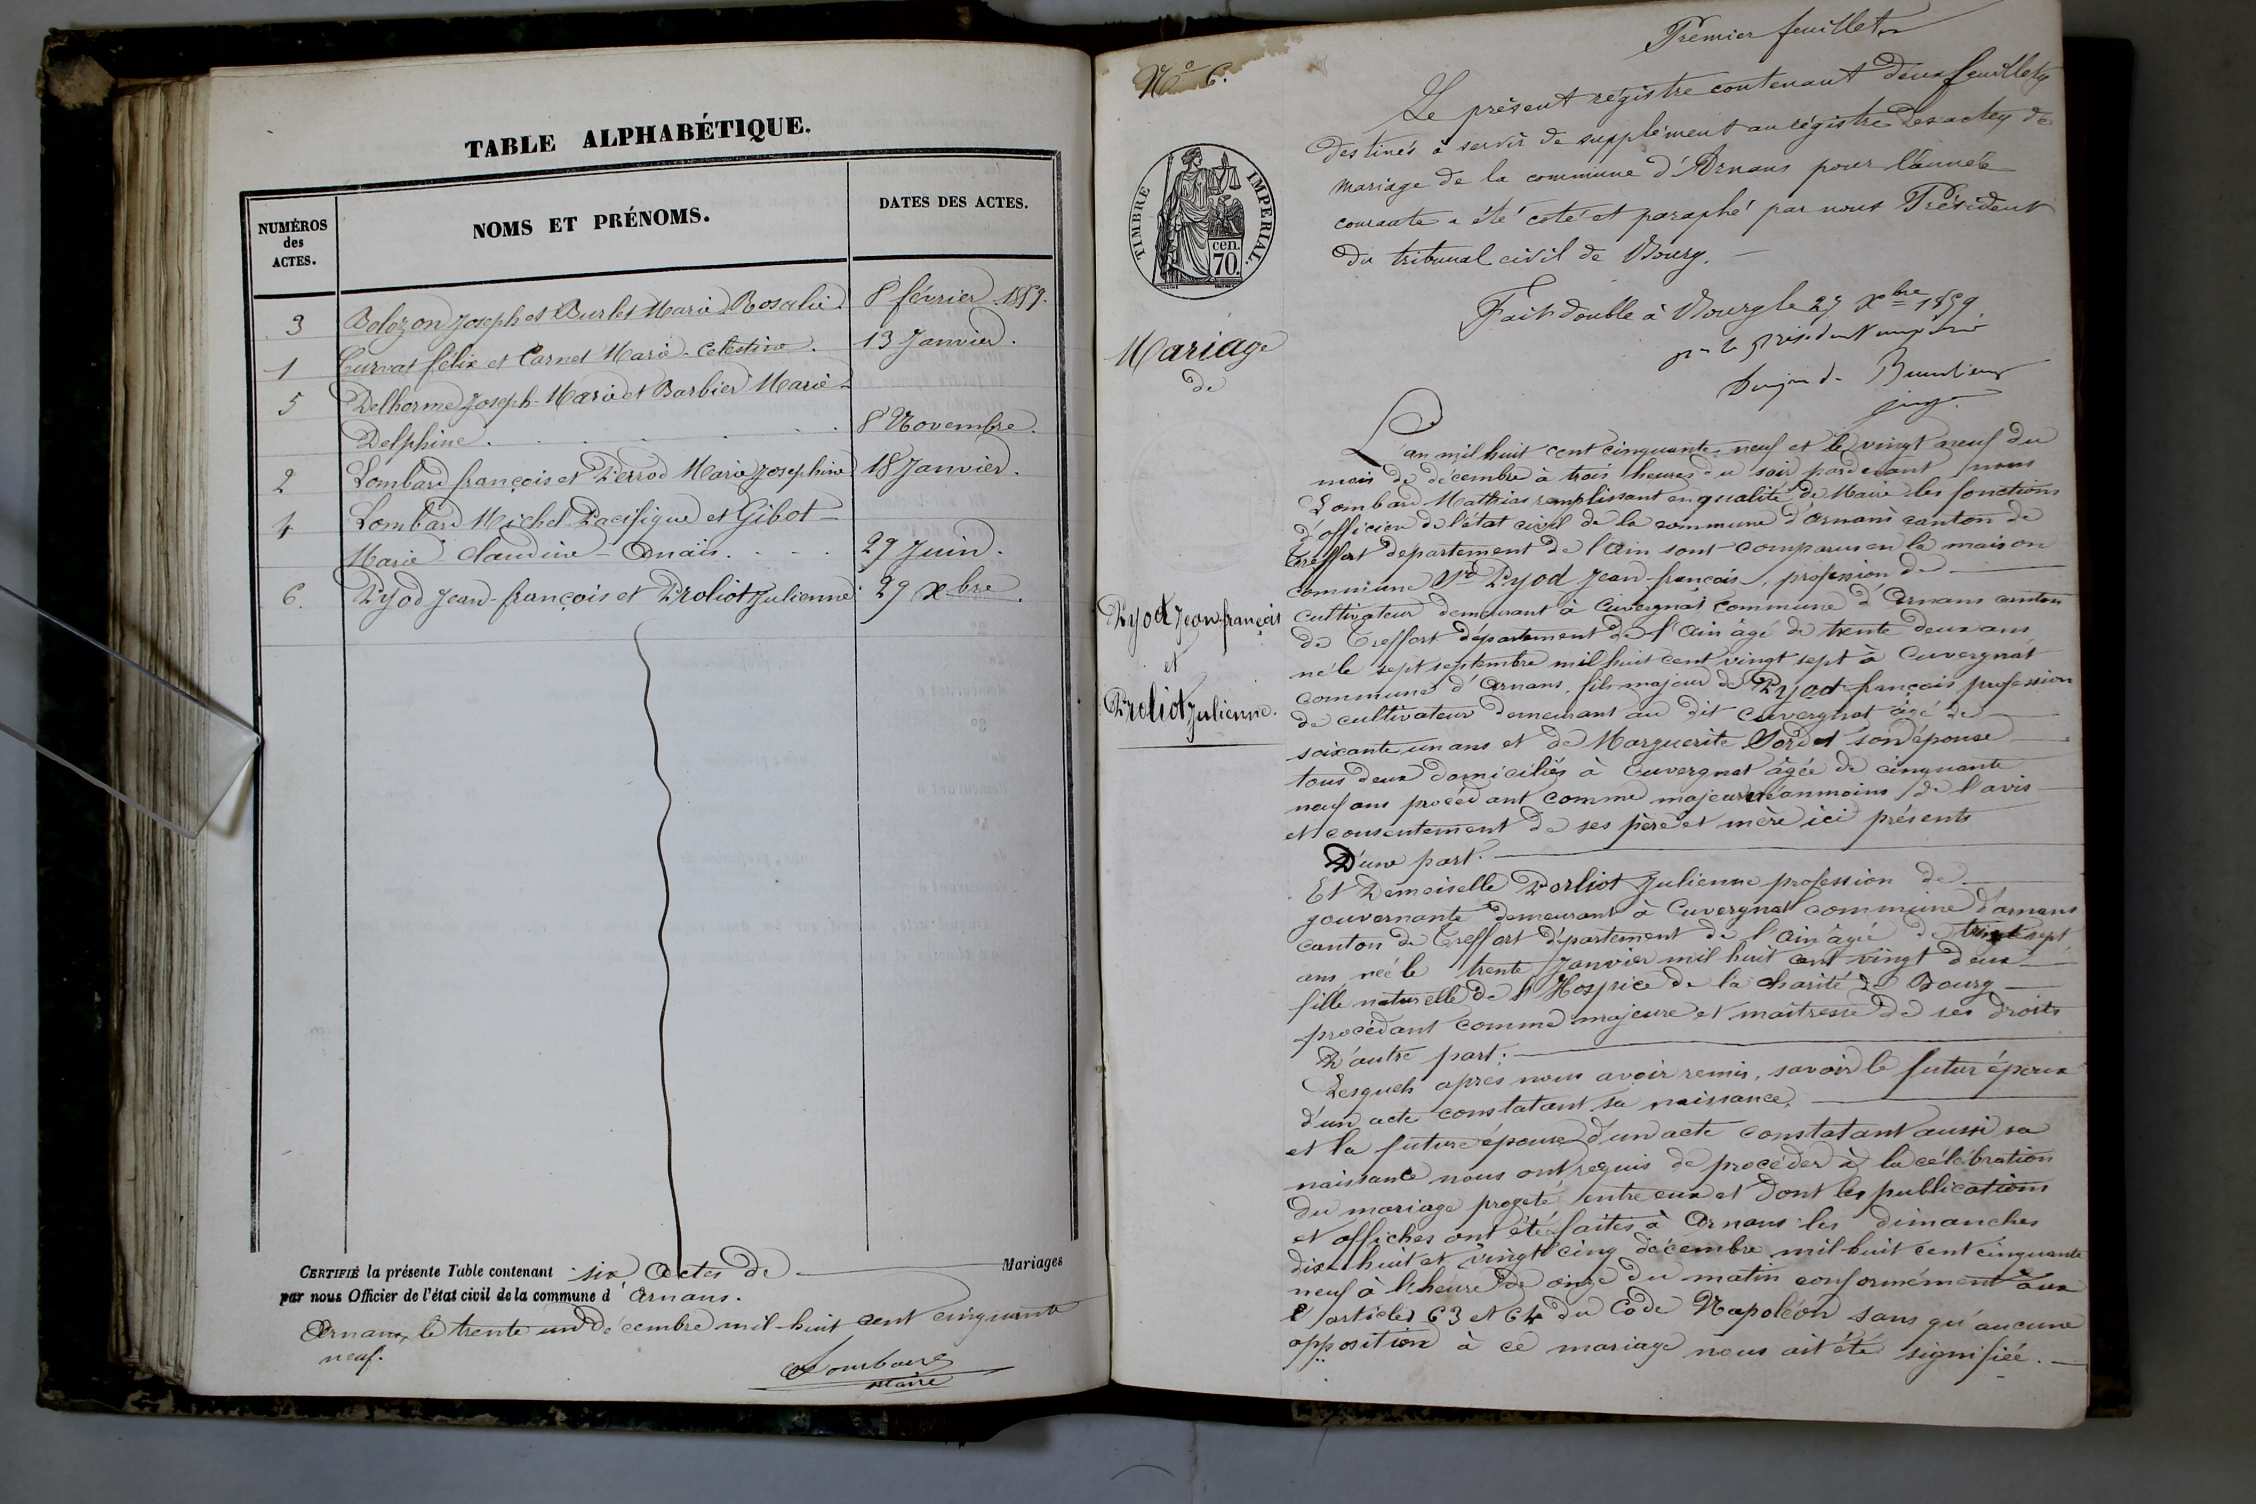 TABLE ALPHABÉTIQUE.
NUMÉROS
des
ACTES.
NOMS ET PRÉNOMS.
DATES DES ACTES.
3 Bolozon Joseph et Burlet Marie Rosalie. 8 février 1859.
1 Curvat félix et Carnet Marie-Celestine. 13 Janvier.
5 Delhorme Joseph-Marie et Barbier Marie-
Delphine. 8 Novembre.
2 Lombard françois et Perrod Marie Josephine 18 Janvier.
4 Lombard Michel-Pacifique et Gibot-
Marie-Claudine-Anaïs. 29 Juin.
6. Pyod Jean-françois et Proliot Julienne 29 Xbre.
CERTIFIÉ la présente Table contenant six Actes de Mariages
par nous Officier de l'état civil de la commune d'Arnans.
Arnans, le trente un décembre mil-huit cent cinquante
neuf.
Lombard
Maire
Premier feuillet
No 6.
Le présent régistre contenant deux feuillets
destinés à servir de supplément au régistre des actes de
mariage de la commune d'Arnans pour l'année
courante a été coté et paraphé par nous Président
du tribunal civil de Bourg.
Fait double à Bourg le 27 Xbre 1859
pr le président empêché
juge
TIMBRE IMPERIAL.
cen.
70.
Mariage
de
Pyod Jean-françois
et
Proliot Julienne.
L'an mil huit cent cinquante-neuf et le vingt neuf du
mois de décembre à trois heures du soir pardevant nous
Lombard Mathias remplissant en qualité de Maire les fonctions
d'officier de l'état civil de la commune d'Arnans canton de
Treffort département de l'Ain sont comparus en la maison
commune Sr Pyod Jean-françois, profession de
cultivateur demeurant à Cuvergnat commune d'Arnans canton
de Treffort département de l'Ain âgé de trente deux ans
né le sept septembre mil huit cent vingt sept à Cuvergnat
commune d'Arnans, fils majeur de Pyod françois profession
de cultivateur demeurant au dit Cuvergnat âgé de
soixante un ans et de Marguerite Sordet son épouse
tous deux domiciliés à Cuvergnat âgée de cinquante
neuf ans procédant comme majeur néanmoins de l'avis
et consentement de ses père et mère ici présents
D'une part.
Et Demoiselle Porliot Julienne profession de
gouvernante demeurant à Cuvergnat commune d'arnans
canton de Treffort département de l'Ain âgée de trente sept
ans, née le trente Janvier mil huit cent vingt deux
fille naturelle de l'Hospice de la charité de Bourg
procédant comme majeure et maîtresse de ses droits
D'autre part.
Lesquels après nous avoir remis, savoir le futur époux
d'un acte constatant sa naissance.
et la future épouse d'un acte constatant aussi sa
naissance nous ont requis de procéder à la célébration
du mariage projeté entre eux et dont les publications
et affiches ont été faites à Arnans les dimanches
dix-huit et vingt cinq décembre mil huit cent cinquante
neuf à l'heure de onze du matin conformément aux
articles 63 et 64 du Code Napoléon sans qu'aucune
opposition à ce mariage nous ait été signifiée.